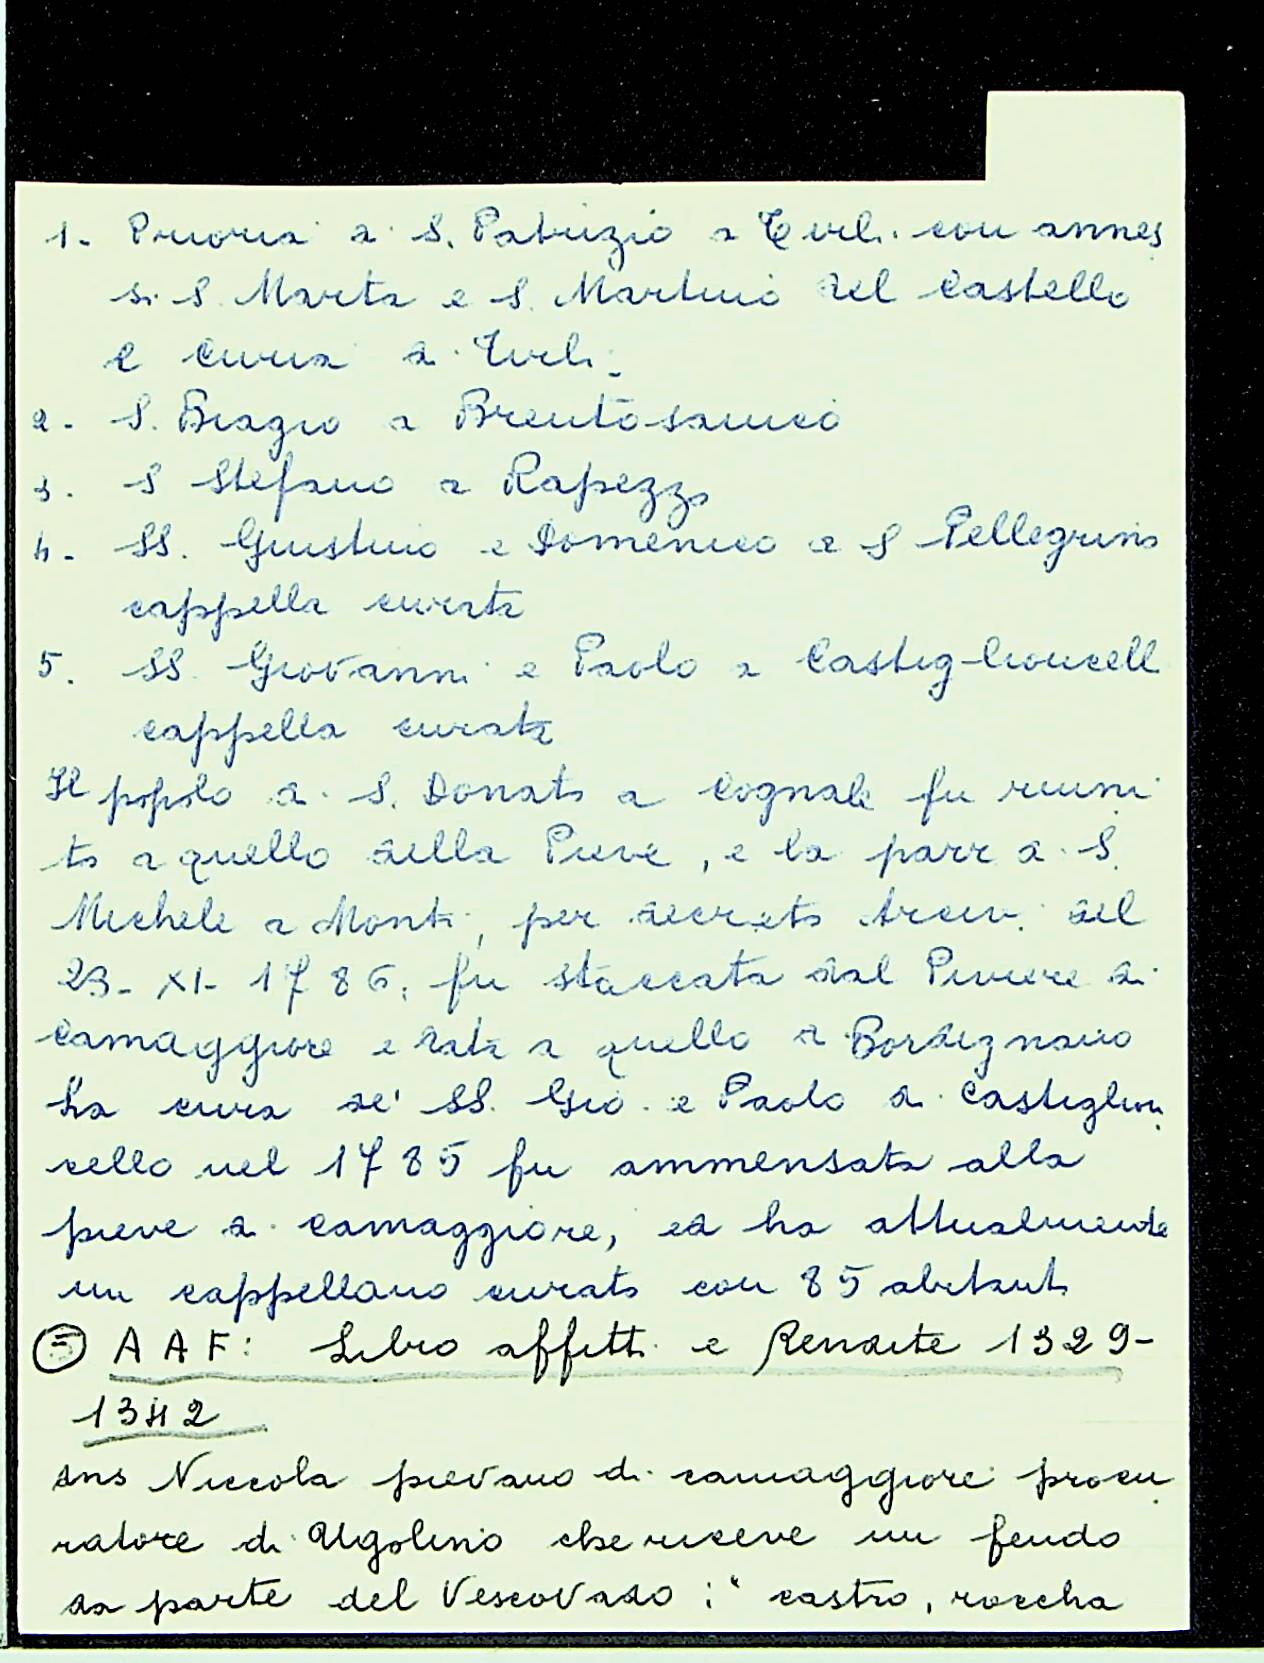 1. Prioria di S. Patrizio a Tirli con annes
si S. Marta e S. Martino del Castello
e curia di Tirli.
2. S. Biagio a Brentosanico
3. S Stefano a Rapezzo
4. SS. Giustino e Domenico a S Pellegrino
cappella curata
5. SS. Giovanni e Paolo a Castiglioncell
cappella curata
Il popolo di S. Donato a Cognale fu riuni
to a quello della Pieve, e la parr di S.
Michele a Monti, per decreto Arciv. del
23-XI-1786, fu staccata dal Piviere di
Camaggiore e data a quello di Bordignano
La cura de' SS. Gio. e Paolo di Castiglion
cello nel 1785 fu ammensata alla
pieve di Camaggiore, ed ha attualmente
un cappellano curato con 85 abitanti
5 AAF: Libro affitti e Rendite 1329-
1342
dns Niccola pievano di camaggiore procu
ratore di Ugolino che riceve un feudo
da parte del Vescovado: "castro, roccha